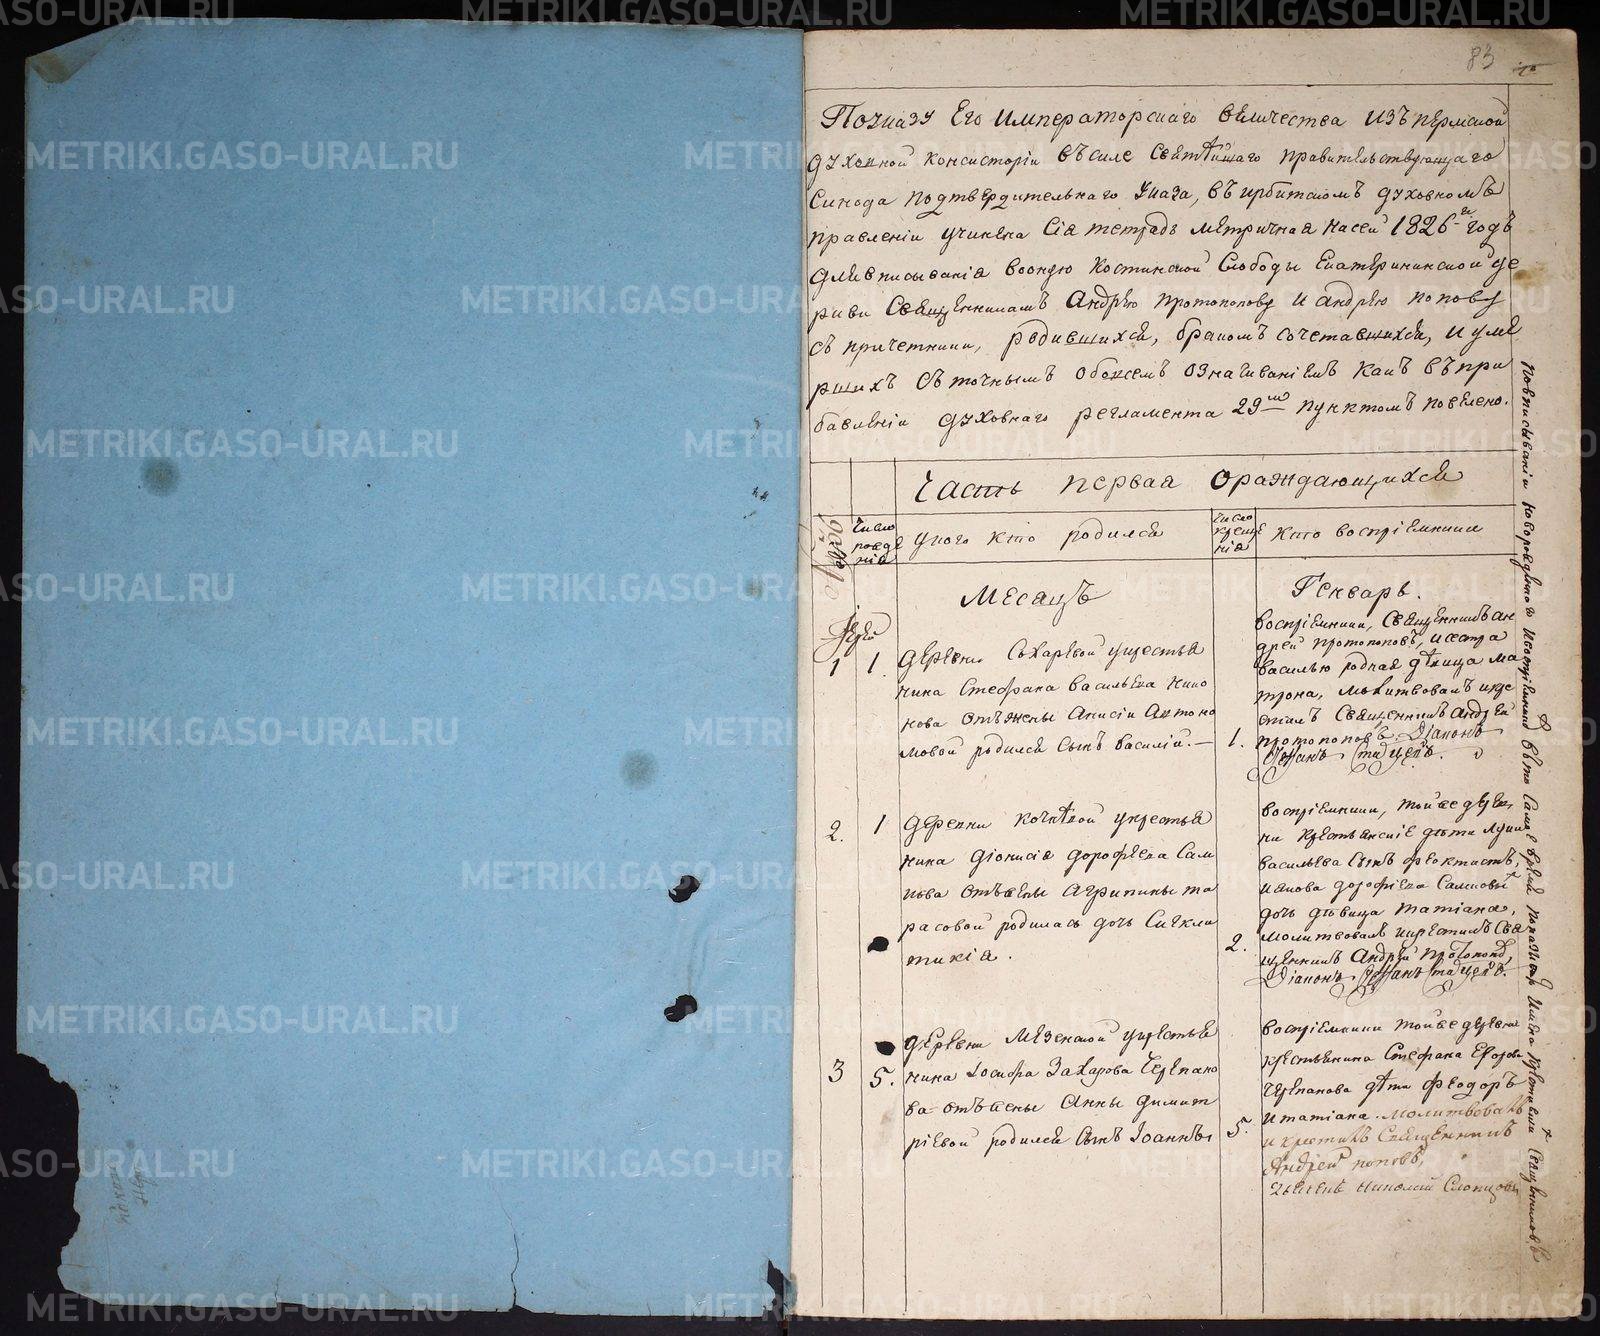 83
Поуказу Его Императорскаго величества изъ пермской
духовной консисторіи въсиле святѣйшаго правительствующаго
Синода подтвердительнаго указа, въ ирбитскомъ духовномъ
правленіи учинена сіа тетрадь метричнаа насей 1826й годъ
длявписываніа вооную костинской слободы Екатерининской це
ркви священникамъ Андрею протопопову и андрею попову
съ причетники, родившихся, бракомъ сочетавшихся, и уме
ршихъ съ точнымъ обовсемъ означиваніемъ какъ въпри
бавленіи духовнаго регламента 29мъ пунктомъ повелено.
Часть первая ораждающихся
Число рожде ніа
укого кто родился
число креще ніа
кто воспріемники
Месяцъ
Генварь.
1
1.
деревни Сохаревой укрестья
нина Стефана васильева
нова отъжены Анисіи Антоно
мовой родился сынъ василій.—
1.
воспріемники, священникъ ан
дрей протопоповъ, исестра
василью роднаа дѣвица ма
трона, молитвовалъ икре
стилъ священникъ андрей
протопоповъ. Діаконъ
Стефанъ
2.
1
деревни кочнѣвой укрестья
нина діонисіа дорофеева Сам
кова отъжены агрипины та
расовой родилась дочь Сигкли
тикіа.
2.
воспріемники, тойже дерев
ни крестьянскіе дѣти луки
васильева сынъ феоктистъ,
иакова дорофѣева Самковы
дочь дѣвица татіана,
молитвовалъ икрестилъ свя
щенникъ Андрей протопоповъ,
Діаконъ Стефанъ
3
5.
деревни мезенской укрестья
нина Іосифа Захарова Черепано
ва отъжены Анны димит
ріевой родился сынъ Іоаннъ
5.
воспріемники тойже деревни
крестьянина Стефана Егорова
черепанова дѣти феодоръ
итатіана. молитвовалъ
и крестилъ священникъ
Андрей поповъ,
Николай Словцовъ
METRIKI.GASO-URAL.RU